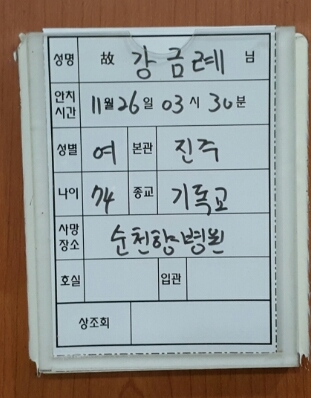 성명 故 강금례 님
안치시간 11월 26일 03시 30분
성별 여 본관 진주
나이 74 종교 기독교
사망장소 순천향병원
호실 입관
상조회